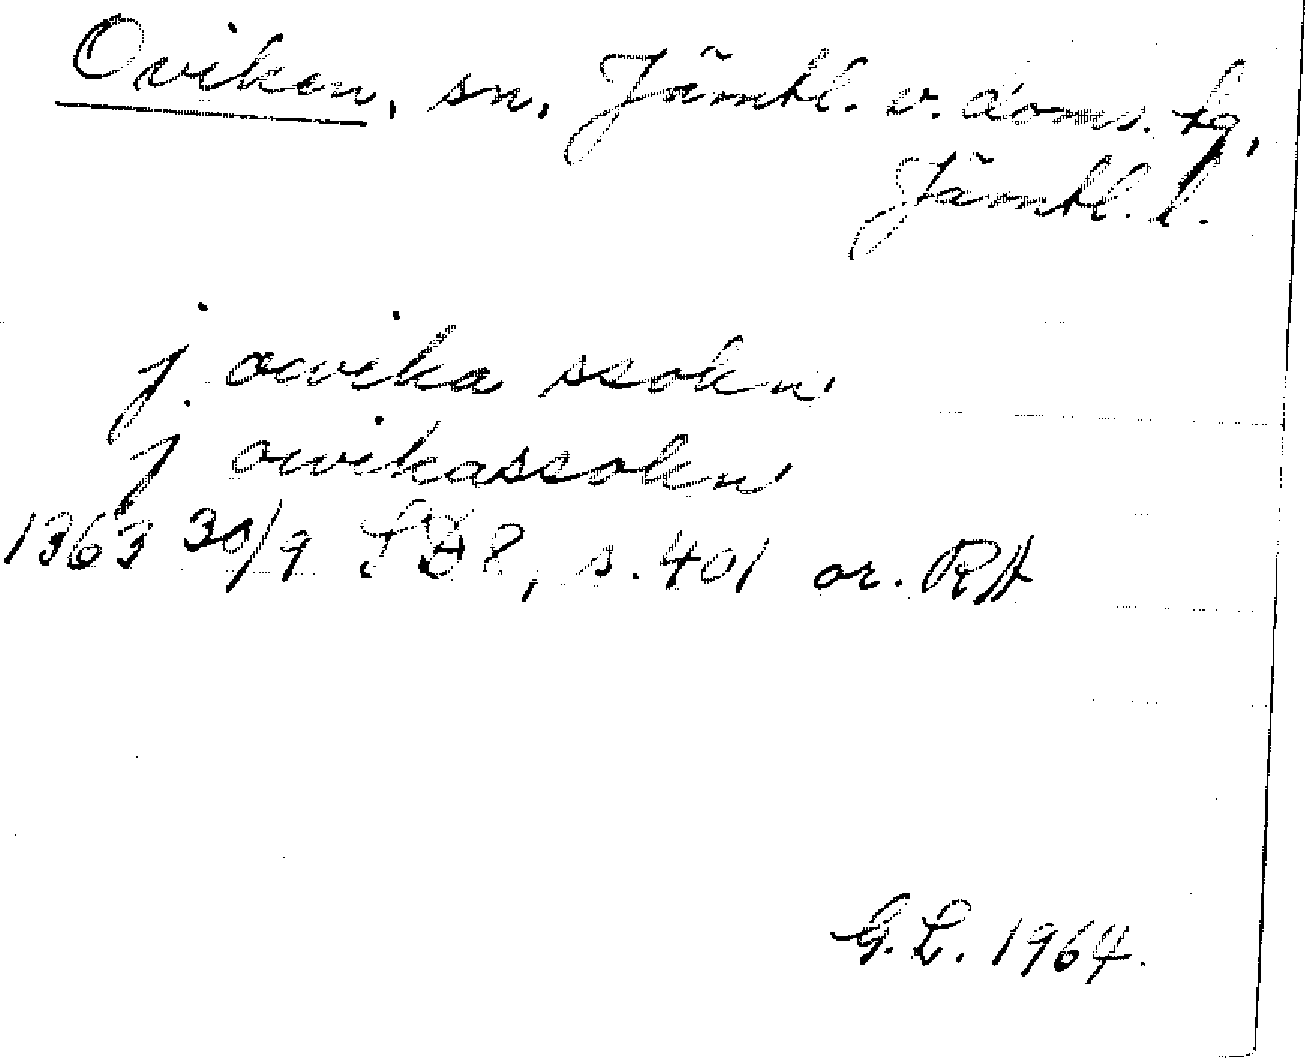 Oviken, sn, Jämtl. v. doms. tg,
Jämtl. l.
j. owika ssokn
j owikassokn
1363 30/9 SD 8, s. 401 or. RA
G. L. 1964.